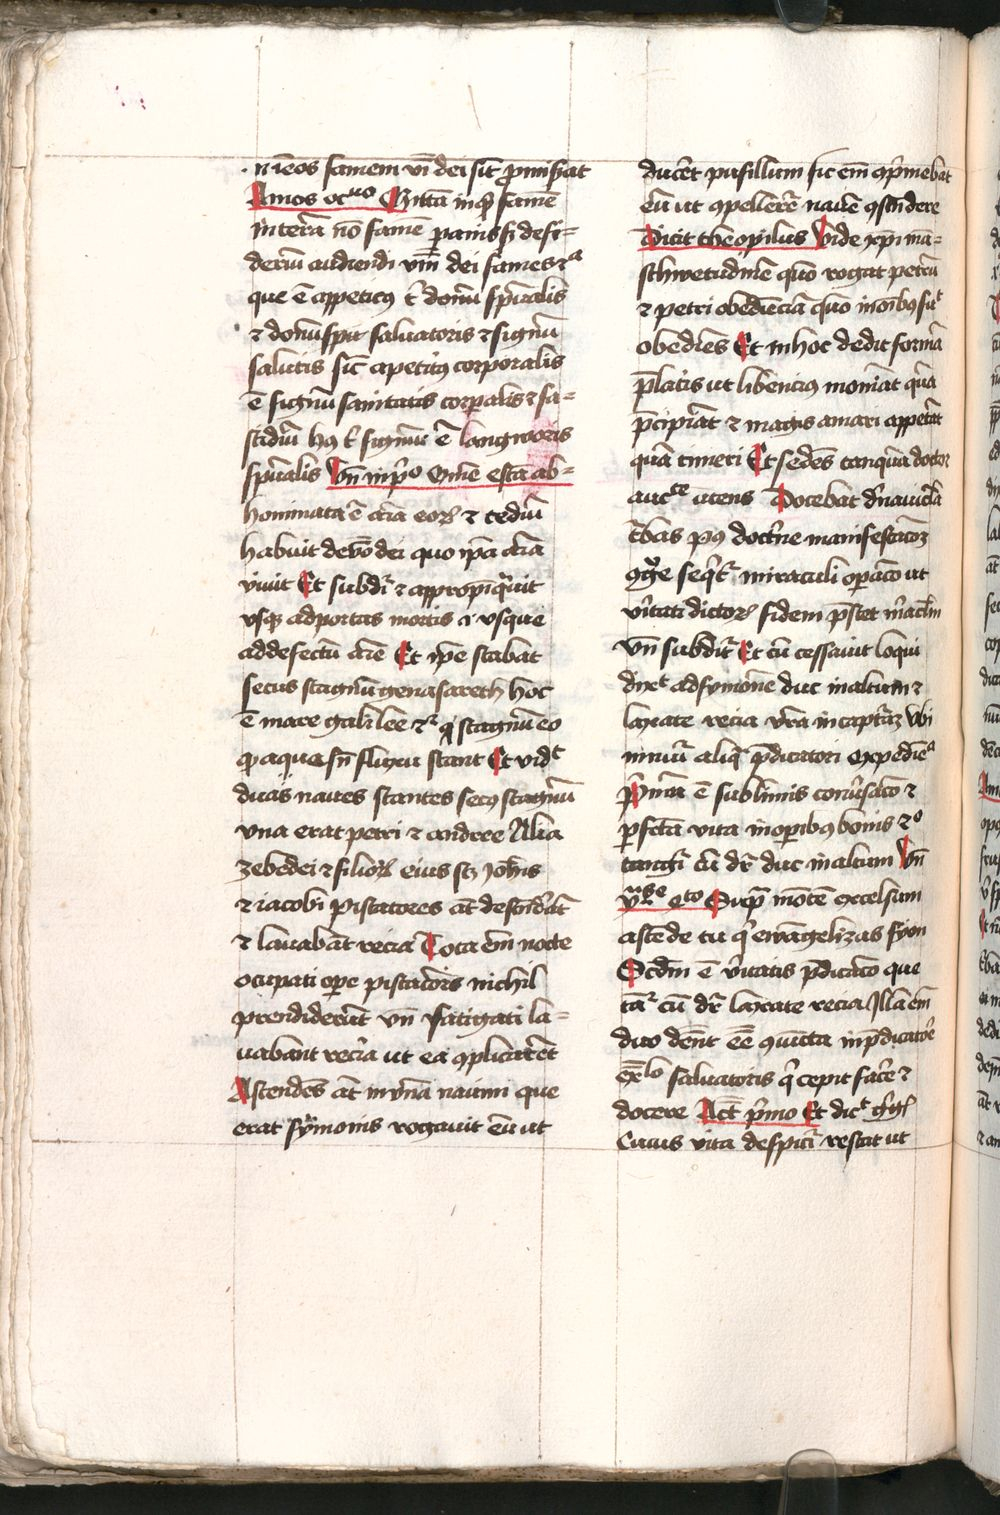 n ieos famem v̄i dei sic̄ promiserat
Amos octavo Mittā inqͥ famē
in terā nō famē panis sꝫ desi=
deriū audiendi v̄m dei fames ꝛᵃ
que ē appetitꝰ ē donū spūalis
ꝛ donū spūs saluatoris ꝛ signū
salutis sic̄ apetitꝰ corporalis
ē signū sanitatis corꝑalis ꝛ fa=
stidiū hꝰ ē signū ē langworis
spūalis Vn̄ in pͦ Omē escā ab=
hominata ē aīa eoꝝ ꝛ tediū
habuit de v̄bo dei quo ipā aīa
viuit Et subdͬ ꝛ appropīquit
vsqꝫ ad portas mortis .i. vsque
ad defectū aīe Et ipē stabat
secus stagnū genasareth hoc
ē mare galilee ꝛͬ qͥ stagnū eo
ꝙ aqua sn̄ fluxu stant Et vidͭ
duas naues stantes secꝰ stagnū
vna erat petri ꝛ andree Alia
zebedei ꝛ filioꝝ eius scꝫ Joh̄is
ꝛ iacobi Piscatores āt descēder̄t
ꝛ lauabāt recia Tota em̄ nocte
ocupati oꝑe piscatōis nichil
prendider̄t vn̄ fatigati la=
uabant recia ut ea ꝯplicarēt
Ascendēs āt in vnā nauim que
erat symonis rogauit eū ut
ducēt pusillum sic em̄ ꝯpͥmebāt
eū ut ꝯpellerēt nauē ꝯscēdere
Dicit theopilus Vide xp̄i mā=
schwetudinē quō rogat petrū
ꝛ petri obediēciā quō in oībꝰ fuͭ
obediēs Et in hoc dedit formā
p̄latis ut libenciꝰ moneāt quā
p̄cipiāt ꝛ magis amari appetāt
quā timeri Et sedēs tanquā doctor
auctᵗᵉ utens Docebat d̄ nauicla
t̄bas pꝰ doctͥne manifestacōꝫ
ꝯgͬe seqͥtͬ miraculi oꝑacō ut
v̄itati dictoꝝ fidem p̄stet mͥaclm̄
Vn̄ subditͬ Et cū cessauit loqui
dixͭ ad symonē duc in altum ꝛ
laxate recia vr̄a in capturā Vbi
innuͥt aliqͥ p̄dicatori expediēᵃ
Pͥma ē sublimis conūsacō ꝛ
ꝑfectā vita in operibꝰ bonis ꝛᵒ
tangͥt cū dͬ duc in altum Vn̄
ysᵃᵉ xlᵗᵒ Supͣ mōtē excelsum
ascēde tu qͥ ewāgelizas syon
Scd̄m ē v̄itatis p̄dicacō que
tāͬ cū dͬ laxate recia Illa em̄
duo dēnt eē ꝯuūcta in p̄dicatoͥe
exͤᵐᵖˡᵒ saluatoris qͥ cepit face ꝛ
docere Act̄ pͥmo Et dicͭ gͥgͬ
Cuius vita despicitͬ restat ut